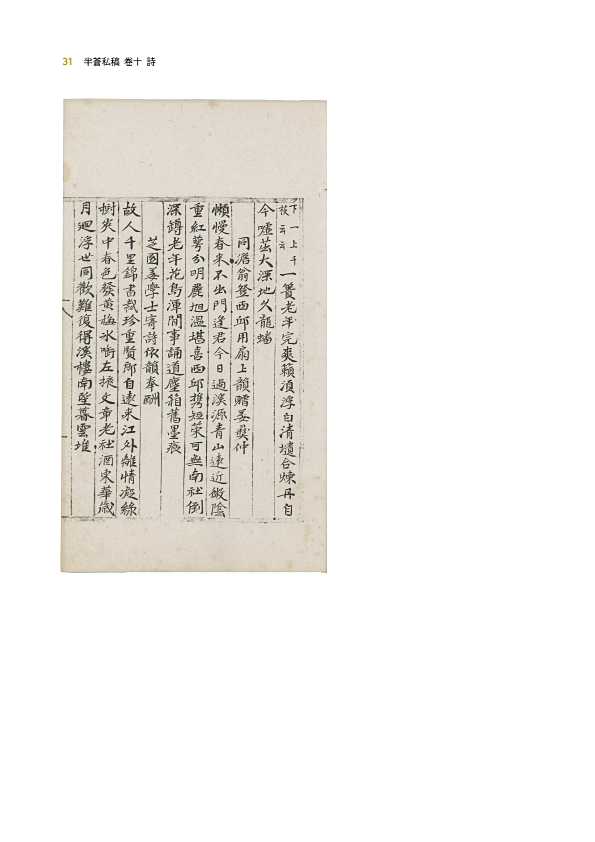 31 半蒼私稿 卷十 詩
下一上千
故云云
一簣老年完爽籟須浮白清壚合煉丹自
今噓茁大深地久龍蟠
同居翁登西邱用扇上韻贈姜戣仲
懶慢春來不出門逢君今日過溪源青山遠近緻陰
重紅萼分明麗旭溫堪喜西邱携短策可無南社倒
深罇老年花鳥渾閒事誦道塵箱舊墨痕
芝園姜學士寄詩依韻奉酬
故人千里錦書裁珍重賢郞自遠來江外離情凝綠
樹炎中春色發黃梅水衙左掖文章老社酒東華歲
月廻浮世同歡難復得溪樓南望暮雲堆